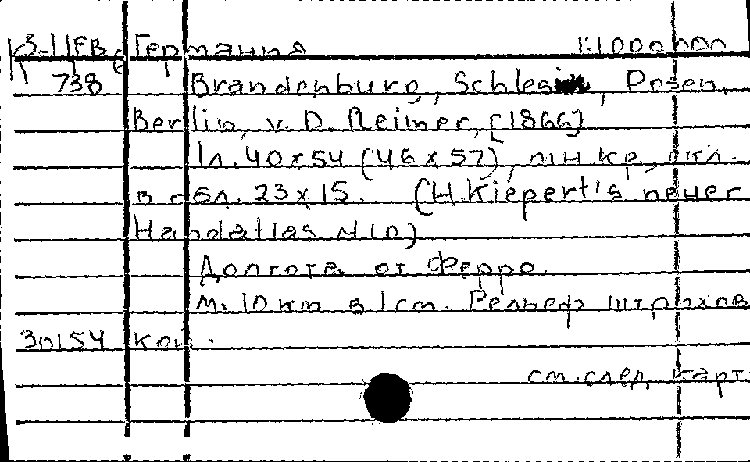 К3-ЦЕВ Германия 1:1000000
738 Brandenburg, Schlesien, Posen.
Berlin, v. D. Reimer, [1866]
1л. 40x54 (46x57), лин кр., скл.
в обл. 23x15. (H. Kiepert's neuer
Handatlas N10)
Долгота от Ферро.
М: 10 км в 1 см. Рельеф штрихов
30154 кой.
см. след. карт